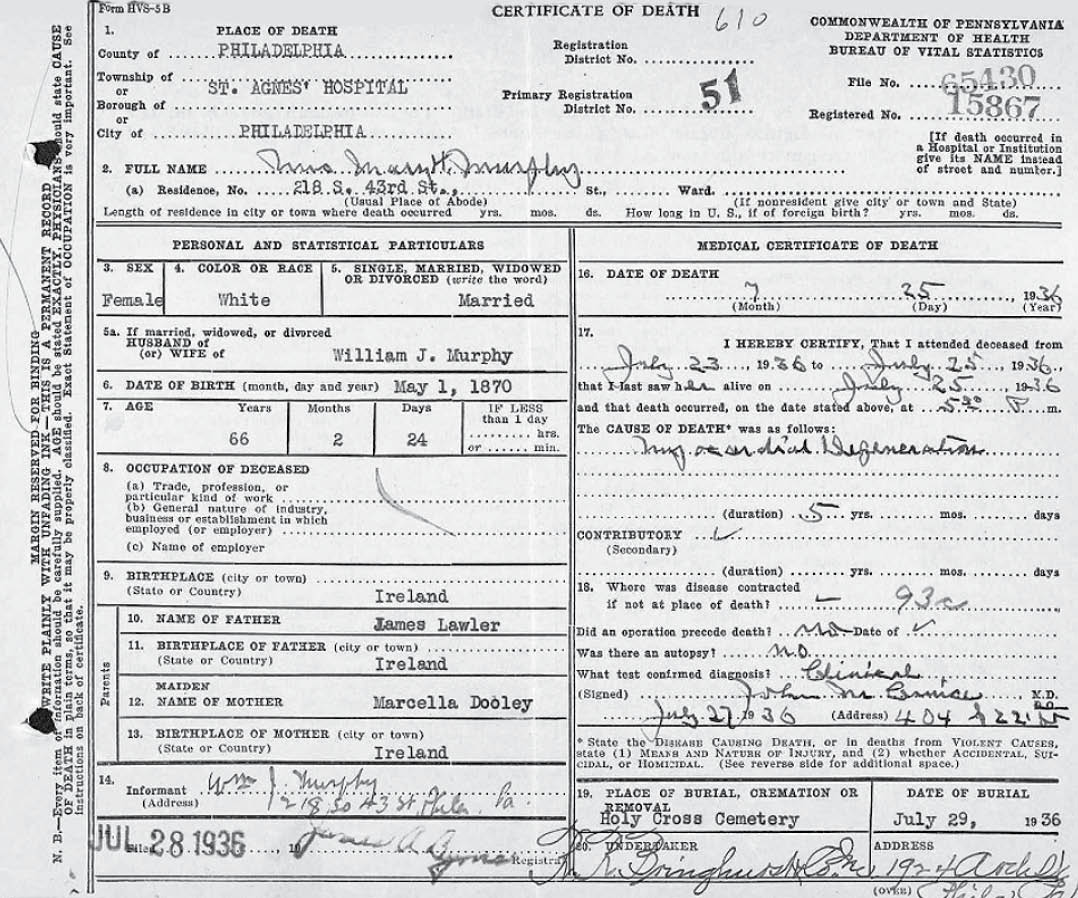 Form HVS-5B
CERTIFICATE OF DEATH 610
COMMONWEALTH OF PENNSYLVANIA
DEPARTMENT OF HEALTH
BUREAU OF VITAL STATISTICS
1. PLACE OF DEATH
County of PHILADELPHIA
Township of
or ST. AGNES' HOSPITAL
Borough of
or
City of PHILADELPHIA
Registration
District No.
Primary Registration
District No. 51
File No. 65430
Registered No. 15867
[If death occurred in
a Hospital or Institution
give its NAME instead
of street and number.]
2. FULL NAME Mrs Mary Murphy
(a) Residence, No. 218 S. 43rd St., St., Ward.
(Usual Place of Abode) (If nonresident give city or town and State)
Length of residence in city or town where death occurred yrs. mos. ds. How long in U. S., if of foreign birth? yrs. mos. ds.
PERSONAL AND STATISTICAL PARTICULARS
3. SEX
Female
4. COLOR OR RACE
White
5. SINGLE, MARRIED, WIDOWED
OR DIVORCED (write the word)
Married
5a. If married, widowed, or divorced
HUSBAND of
(or) WIFE of William J. Murphy
6. DATE OF BIRTH (month, day and year) May 1, 1870
7. AGE Years Months Days IF LESS
than 1 day
66 2 24 hrs.
or min.
8. OCCUPATION OF DECEASED
(a) Trade, profession, or
particular kind of work
(b) General nature of industry,
business or establishment in which
employed (or employer)
(c) Name of employer
9. BIRTHPLACE (city or town)
(State or Country) Ireland
Parents
10. NAME OF FATHER James Lawler
11. BIRTHPLACE OF FATHER (city or town)
(State or Country) Ireland
MAIDEN
12. NAME OF MOTHER Marcella Dooley
13. BIRTHPLACE OF MOTHER (city or town)
(State or Country) Ireland
14.
Informant Wm J. Murphy
(Address) 218 So 43 St Phila. Pa.
JUL 28 1936
Filed , 19 James A. Registrar
MEDICAL CERTIFICATE OF DEATH
16. DATE OF DEATH
7 25, 1936
(Month) (Day) (Year)
17. I HEREBY CERTIFY, That I attended deceased from
July 23, 1936 to July 25, 1936,
that I last saw her alive on July 25 1936
and that death occurred, on the date stated above, at P m.
The CAUSE OF DEATH* was as follows:
Myocardial Degeneration
(duration) 5 yrs. mos. days
CONTRIBUTORY
(Secondary)
(duration) yrs. mos. days
18. Where was disease contracted
if not at place of death? 93c
Did an operation precede death? No Date of
Was there an autopsy? No
What test confirmed diagnosis? Clinical
(Signed) John M. M.D.
July 27 1936 (Address) 404 S 22
* State the DISEASE CAUSING DEATH, or in deaths from VIOLENT CAUSES,
state (1) MEANS AND NATURE OF INJURY, and (2) whether ACCIDENTAL, SUI-
CIDAL, or HOMICIDAL. (See reverse side for additional space.)
19. PLACE OF BURIAL, CREMATION OR
REMOVAL
Holy Cross Cemetery
DATE OF BURIAL
July 29, 1936
20. UNDERTAKER
R. R. Bringhurst Co. Inc.
ADDRESS
1924 Arch St
(OVER) Phila Pa
MARGIN RESERVED FOR BINDING
WRITE PLAINLY WITH UNFADING INK—THIS IS A PERMANENT RECORD
N. B.—Every item of information should be carefully supplied. AGE should be stated EXACTLY. PHYSICIANS should state CAUSE
OF DEATH in plain terms, so that it may be properly classified. Exact Statement of OCCUPATION is very important. See
instructions on back of certificate.